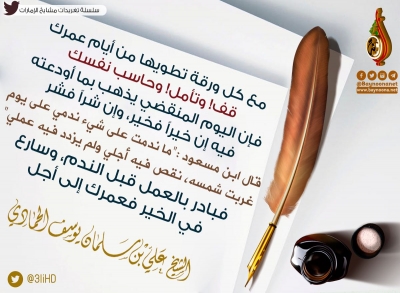 سلسلة تغريدات مشايخ الإمارات
@Baynoonanet
www.baynoona.net
مع كل ورقة تطويها من أيام عمرك
قف! وتأمل! وحاسب نفسك
فإن اليوم المنقضي يذهب بما أودعته
فيه إن خيراً فخير، وإن شراً فشر
قال ابن مسعود :"ما ندمت على شيء ندمي على يوم
غربت شمسه، نقص فيه أجلي ولم يزدد فيه عملي"
فبادر بالعمل قبل الندم، وسارع
في الخير فعمرك إلى أجل
الشيخ علي بن سلمان يوسف الحمادي
@3liHD